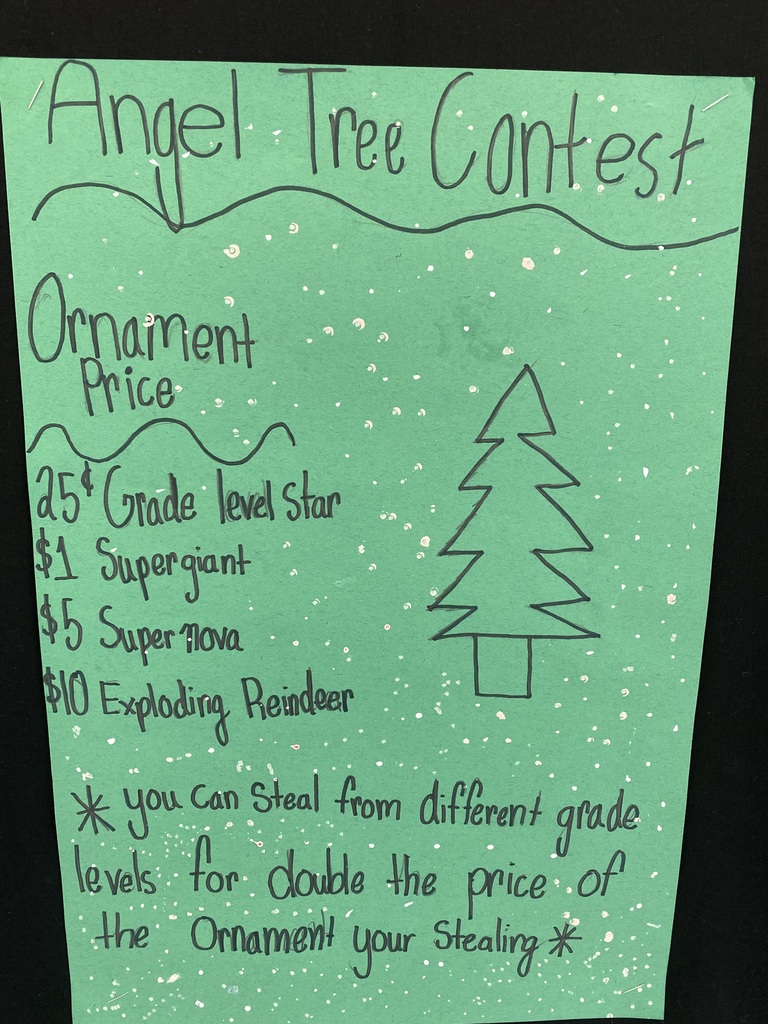 Angel Tree Contest
Ornament
Price
25¢ Grade level Star
$1 Supergiant
$5 Super nova
$10 Exploding Reindeer
* you can steal from different grade
levels for double the price of
the Ornament your stealing *